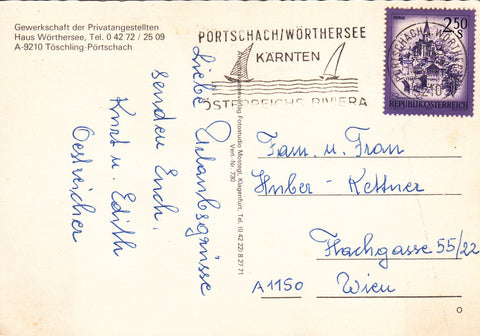 Gewerkschaft der Privatangestellten
Haus Wörthersee, Tel. 0 42 72 / 25 09
A-9210 Töschling-Pörtschach
PÖRTSCHACH/WÖRTHERSEE
KÄRNTEN
ÖSTERREICHS RIVIERA
2.50
S
REPUBLIK ÖSTERREICH
Liebe Urlaubsgrüsse
senden Euch,
Kurt u. Edith
Oestreicher
Fotostudio Mostegl, Klagenfurt, Tel. (0 42 22) 8 27 71
Verl.-Nr. 730
Fam. u. Frau
Huber-Kettner
Flachgasse 55/22
A1150 Wien